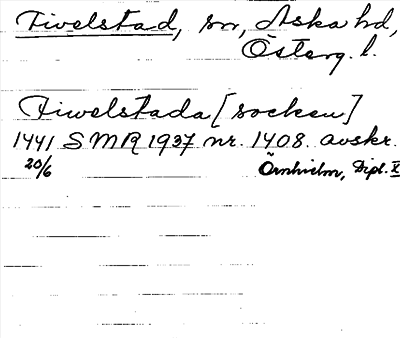 Fivelstad, sn, Aska hd,
Österg. l.
Fiwelstada [socken]
1441 SMR 1937 nr. 1408. avskr.
20/6 Örnhielm, Dipl. X